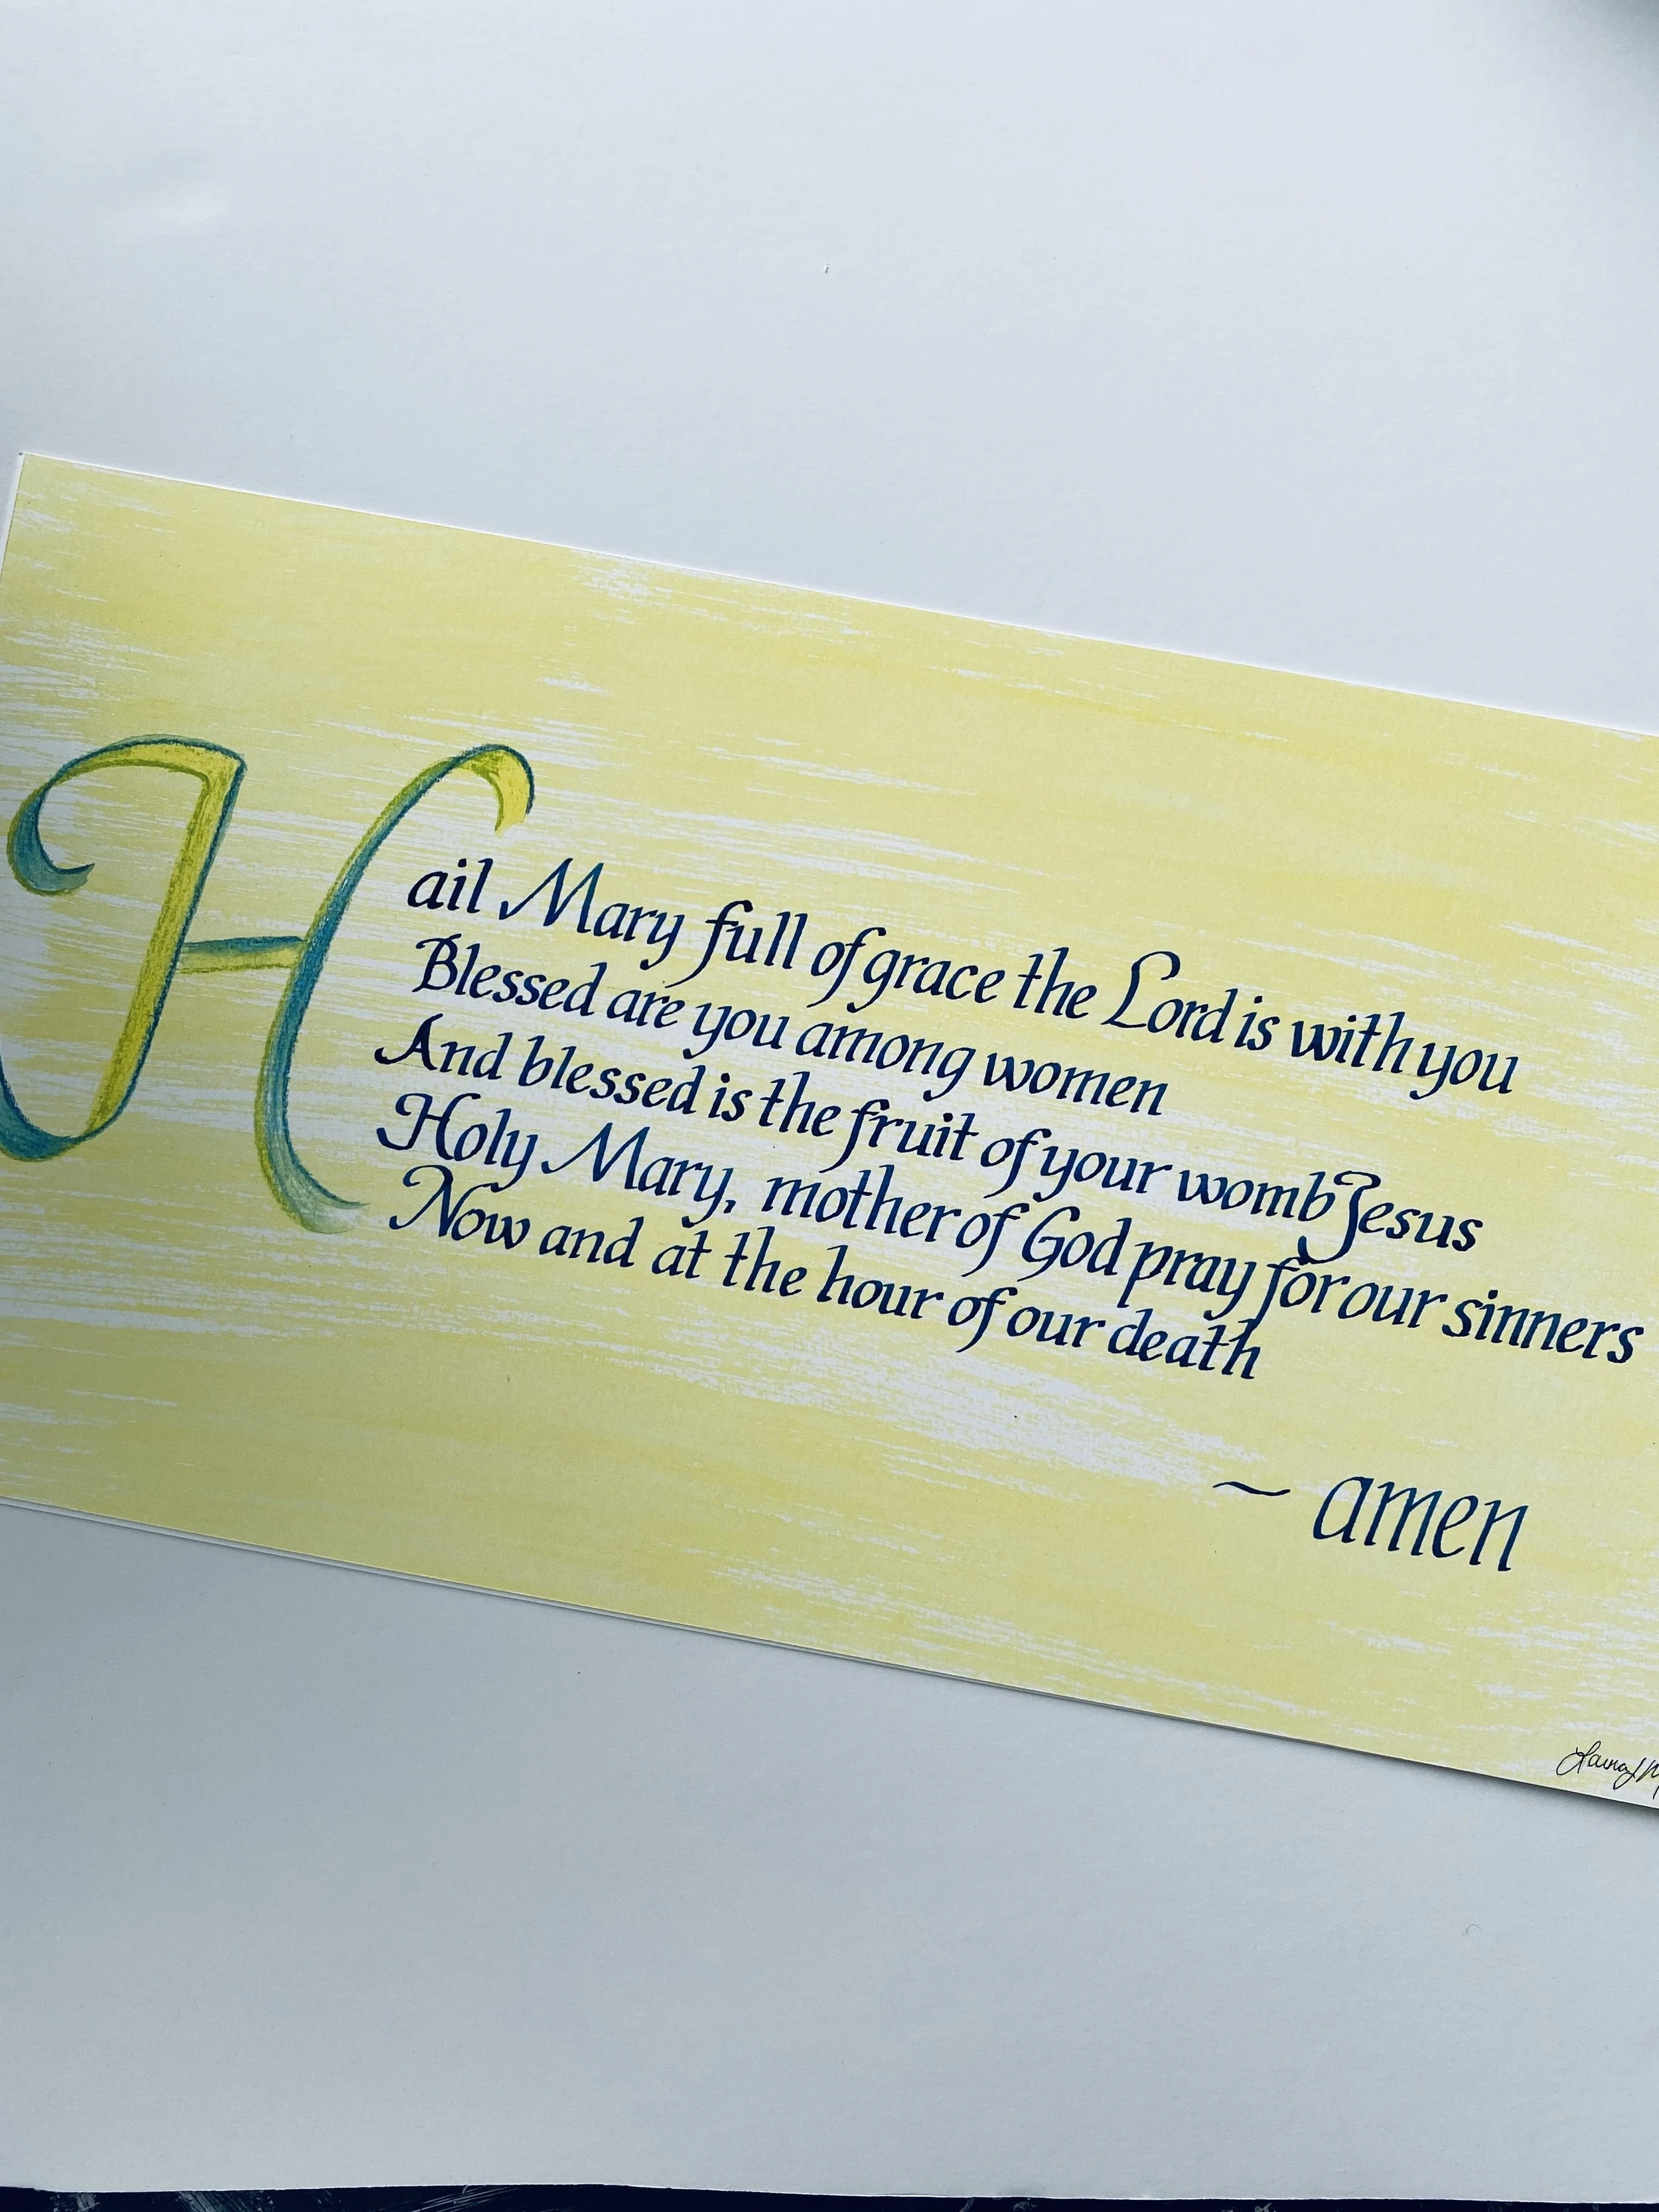 Hail Mary full of grace the Lord is with you
Blessed are you among women
And blessed is the fruit of your womb Jesus
Holy Mary, mother of God pray for our sinners
Now and at the hour of our death
~ amen